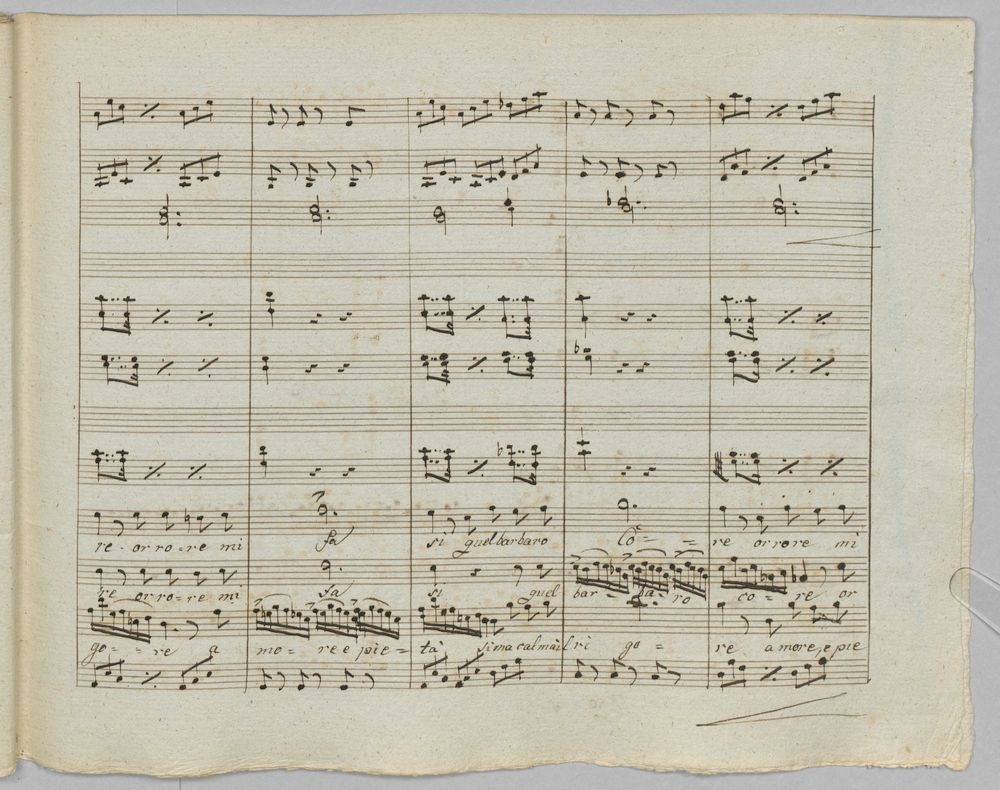 re - orro = re mi Fa si quel barbaro Co = = re orrore mi
re orro = re mi Fa si quel bar = ba ro co = re or
go = = re a mo = re e pie = tà si ma calma il ri go = re amore, e pie